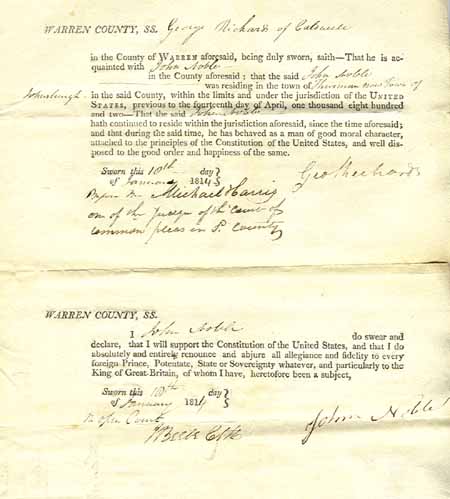 WARREN COUNTY, SS. George Richards of Caldwell
in the County of WARREN aforesaid, being duly sworn, saith—That he is ac-
quainted with John Noble
in the County aforesaid; that the said John Noble
was residing in the town of Thurman now Town of
Johnsburgh in the said County, within the limits and under the jurisdiction of the UNITED
STATES, previous to the fourteenth day of April, one thousand eight hundred
and two—That the said John Noble
hath continued to reside within the jurisdiction aforesaid, since the time aforesaid;
and that during the said time, he has behaved as a man of good moral character,
attached to the principles of the Constitution of the United States, and well dis-
posed to the good order and happiness of the same.
Sworn this 10th day
of January 1814
Geo Richards
Before me Michael Harris
one of the Judges of the Court of
common pleas in Sd. County
WARREN COUNTY, SS.
I John Noble do swear and
declare, that I will support the Constitution of the United States, and that I do
absolutely and entirely renounce and abjure all allegiance and fidelity to every
foreign Prince, Potentate, State or Sovereignty whatever, and particularly to the
King of Great-Britain, of whom I have, heretofore been a subject,
Sworn this 10th day
of January 1814
In open Court
John Noble
Clk